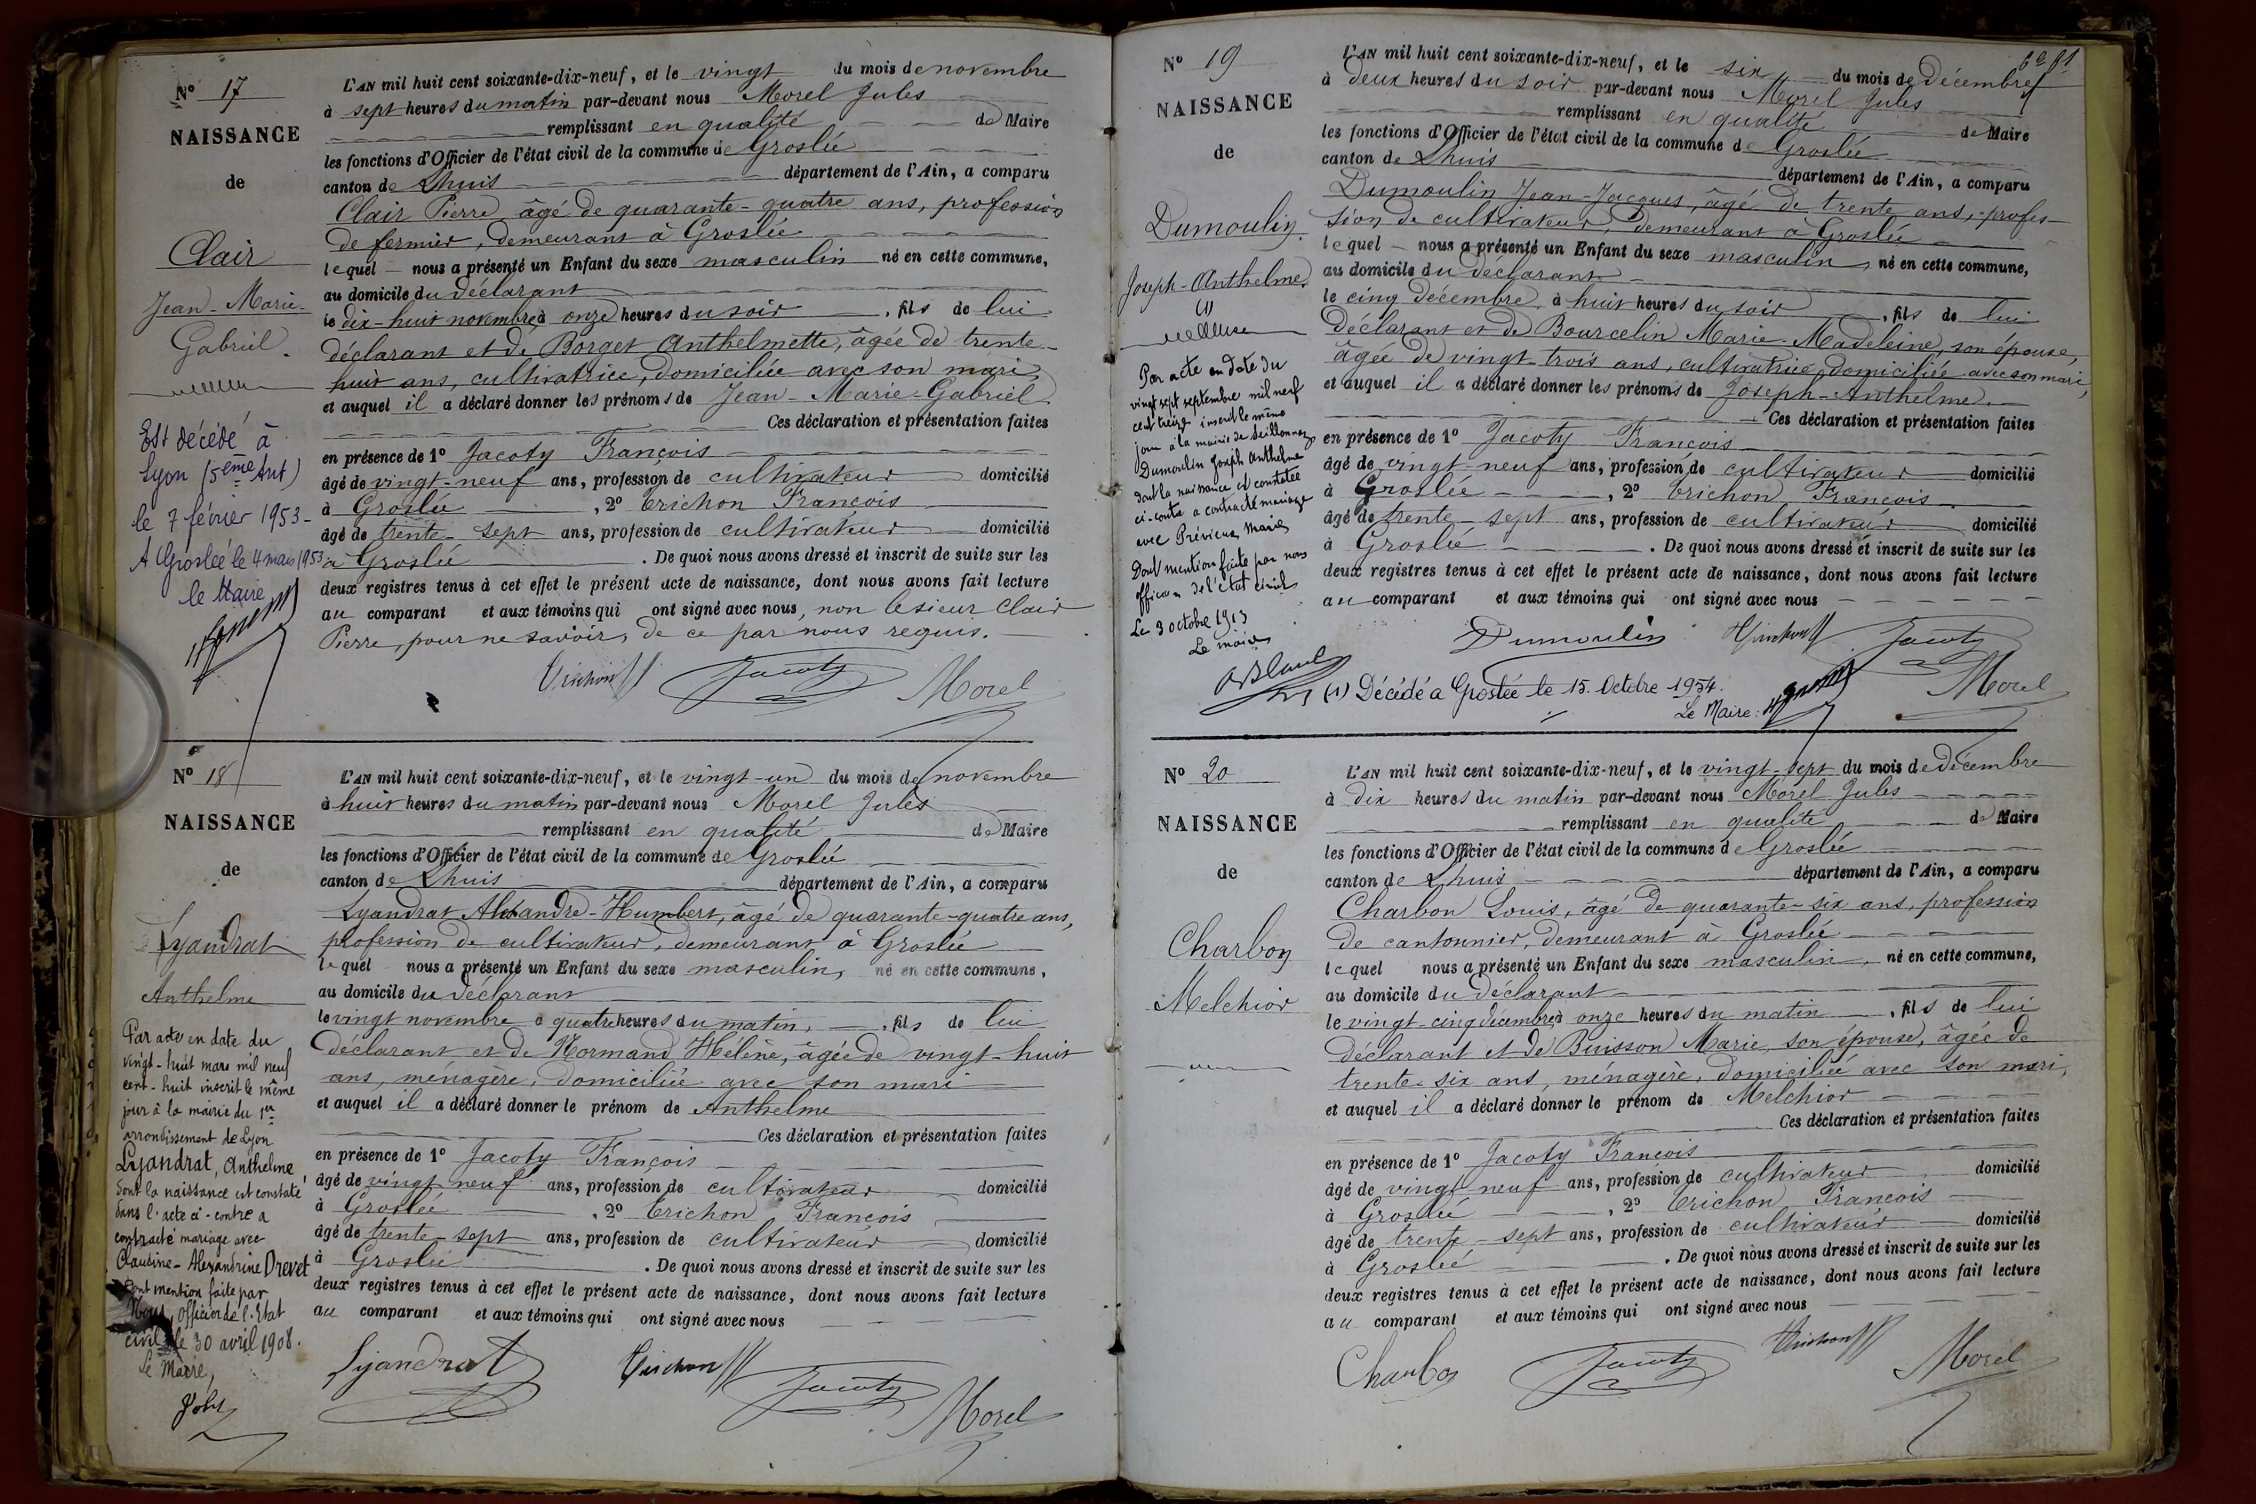 Nº 17
NAISSANCE
de
Clair
Jean-Marie-
Gabriel.
Est décédé à
Lyon (5ème Arrt)
le 7 février 1953-
A Groslée le 4 mars 1953
le Maire
L'AN mil huit cent soixante-dix-neuf, et le vingt du mois de novembre
à sept heures du matin par-devant nous Morel Jules
remplissant en qualité de Maire
les fonctions d'Officier de l'état civil de la commune de Groslée
canton de Lhuis département de l'Ain, a comparu
Clair Pierre, âgé de quarante-quatre ans, profession
de fermier, demeurant à Groslée
lequel nous a présenté un Enfant du sexe masculin né en cette commune,
au domicile du déclarant
le dix-huit novembre à onze heures du soir, fils de lui
déclarant et de Borget Anthelmette, âgée de trente-
huit ans, cultivatrice, domiciliée avec son mari,
et auquel il a déclaré donner les prénoms de Jean-Marie-Gabriel.
Ces déclaration et présentation faites
en présence de 1º Jacoty François
âgé de vingt-neuf ans, profession de cultivateur domicilié
à Groslée, 2º Trichon François
âgé de trente-sept ans, profession de cultivateur domicilié
à Groslée. De quoi nous avons dressé et inscrit de suite sur les
deux registres tenus à cet effet le présent acte de naissance, dont nous avons fait lecture
au comparant et aux témoins qui ont signé avec nous, non le sieur Clair
Pierre, pour ne savoir, de ce par nous requis.
Trichon Jacoty Morel
Nº 18
NAISSANCE
de
Lyandrat
Anthelme
Par acte en date du
vingt-huit mars mil neuf
cent-huit inscrit le même
jour à la mairie du 1er
arrondissement de Lyon
Lyandrat, Anthelme
dont la naissance est constaté
dans l'acte ci-contre a
contracté mariage avec
Claudine-Alexandrine Drevet
Dont mention faite par
Nous, Officier de l'Etat
civil le 30 avril 1908.
Le Maire,
L'AN mil huit cent soixante-dix-neuf, et le vingt-un du mois de novembre
à huit heures du matin par-devant nous Morel Jules
remplissant en qualité de Maire
les fonctions d'Officier de l'état civil de la commune de Groslée
canton de Lhuis département de l'Ain, a comparu
Lyandrat Alexandre-Humbert, âgé de quarante-quatre ans,
profession de cultivateur, demeurant à Groslée
lequel nous a présenté un Enfant du sexe masculin, né en cette commune,
au domicile du déclarant
le vingt novembre à quatre heures du matin, fils de lui
déclarant et de Normand Hélène, âgée de vingt-huit
ans, ménagère, domiciliée avec son mari
et auquel il a déclaré donner le prénom de Anthelme
Ces déclaration et présentation faites
en présence de 1º Jacoty François
âgé de vingt-neuf ans, profession de cultivateur domicilié
à Groslée, 2º Trichon François
âgé de trente-sept ans, profession de cultivateur domicilié
à Groslée. De quoi nous avons dressé et inscrit de suite sur les
deux registres tenus à cet effet le présent acte de naissance, dont nous avons fait lecture
au comparant et aux témoins qui ont signé avec nous
Lyandrat Trichon Jacoty Morel
Nº 19
NAISSANCE
de
Dumoulin
Joseph-Anthelme
(1)
Par acte en date du
vingt sept septembre mil neuf
cent treize inscrit le même
jour à la mairie de Seillonnaz
Dumoulin Joseph Anthelme
dont la naissance est constatée
ci-contre a contracté mariage
avec Prévieux Marie
Dont mention faite par nous
officier de l'état civil
Le 3 octobre 1913
Le maire
L'AN mil huit cent soixante-dix-neuf, et le six du mois de décembre
à deux heures du soir par-devant nous Morel Jules
remplissant en qualité de Maire
les fonctions d'Officier de l'état civil de la commune de Groslée
canton de Lhuis département de l'Ain, a comparu
Dumoulin Jean-Jacques, âgé de trente ans, profes-
sion de cultivateur, demeurant à Groslée
lequel nous a présenté un Enfant du sexe masculin, né en cette commune,
au domicile du déclarant
le cinq décembre à huit heures du soir, fils de lui
déclarant et de Bourcelin Marie-Madeleine, son épouse,
âgée de vingt-trois ans, cultivatrice, domiciliée avec son mari,
et auquel il a déclaré donner les prénoms de Joseph-Anthelme.
Ces déclaration et présentation faites
en présence de 1º Jacoty François
âgé de vingt-neuf ans, profession de cultivateur domicilié
à Groslée, 2º Trichon François
âgé de trente-sept ans, profession de cultivateur domicilié
à Groslée. De quoi nous avons dressé et inscrit de suite sur les
deux registres tenus à cet effet le présent acte de naissance, dont nous avons fait lecture
au comparant et aux témoins qui ont signé avec nous
Dumoulin Trichon Jacoty
Morel
(1) Décédé à Groslée le 15. Octobre 1954.
Le Maire:
Nº 20
NAISSANCE
de
Charbon
Melchior
L'AN mil huit cent soixante-dix-neuf, et le vingt-sept du mois de décembre
à dix heures du matin par-devant nous Morel Jules
remplissant en qualité de Maire
les fonctions d'Officier de l'état civil de la commune de Groslée
canton de Lhuis département de l'Ain, a comparu
Charbon Louis, âgé de quarante-six ans, profession
de cantonnier, demeurant à Groslée
lequel nous a présenté un Enfant du sexe masculin, né en cette commune,
au domicile du déclarant
le vingt-cinq décembre à onze heures du matin, fils de lui
déclarant et de Buisson Marie, son épouse, âgée de
trente-six ans, ménagère, domiciliée avec son mari,
et auquel il a déclaré donner le prénom de Melchior
Ces déclaration et présentation faites
en présence de 1º Jacoty François
âgé de vingt-neuf ans, profession de cultivateur domicilié
à Groslée, 2º Trichon François
âgé de trente-sept ans, profession de cultivateur domicilié
à Groslée. De quoi nous avons dressé et inscrit de suite sur les
deux registres tenus à cet effet le présent acte de naissance, dont nous avons fait lecture
au comparant et aux témoins qui ont signé avec nous
Charbon Jacoty Trichon Morel